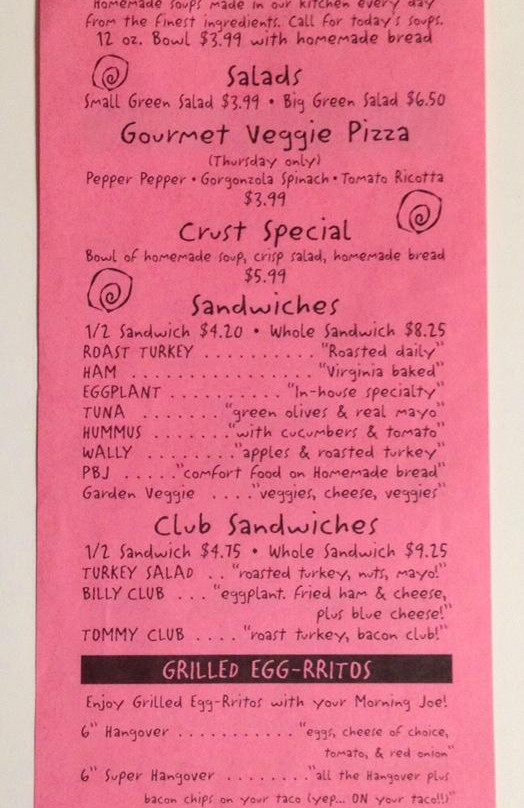 Homemade soups made in our kitchen every day
from the finest ingredients. Call for today's soups.
12 oz. Bowl $3.99 with homemade bread
Salads
Small Green Salad $3.99 • Big Green Salad $6.50
Gourmet Veggie Pizza
(Thursday only)
Pepper Pepper • Gorgonzola Spinach • Tomato Ricotta
$3.99
Crust Special
Bowl of homemade soup, crisp salad, homemade bread
$5.99
Sandwiches
1/2 Sandwich $4.20 • Whole Sandwich $8.25
ROAST TURKEY .......... "Roasted daily"
HAM ................. "Virginia baked"
EGGPLANT .......... "In-house specialty"
TUNA ....... "green olives & real mayo"
HUMMUS ....... "with cucumbers & tomato"
WALLY ........ "apples & roasted turkey"
PBJ ..... "comfort food on Homemade bread"
Garden Veggie .... "veggies, cheese, veggies"
Club Sandwiches
1/2 Sandwich $4.75 • Whole Sandwich $9.25
TURKEY SALAD .. "roasted turkey, nuts, mayo!"
BILLY CLUB ... "eggplant. fried ham & cheese,
plus blue cheese!"
TOMMY CLUB .... "roast turkey, bacon club!"
GRILLED EGG-RRITOS
Enjoy Grilled Egg-Rritos with your Morning Joe!
6" Hangover ........... "eggs, cheese of choice,
tomato, & red onion"
6" Super Hangover ........ "all the Hangover plus
bacon chips on your taco (yep... ON your taco!!)"